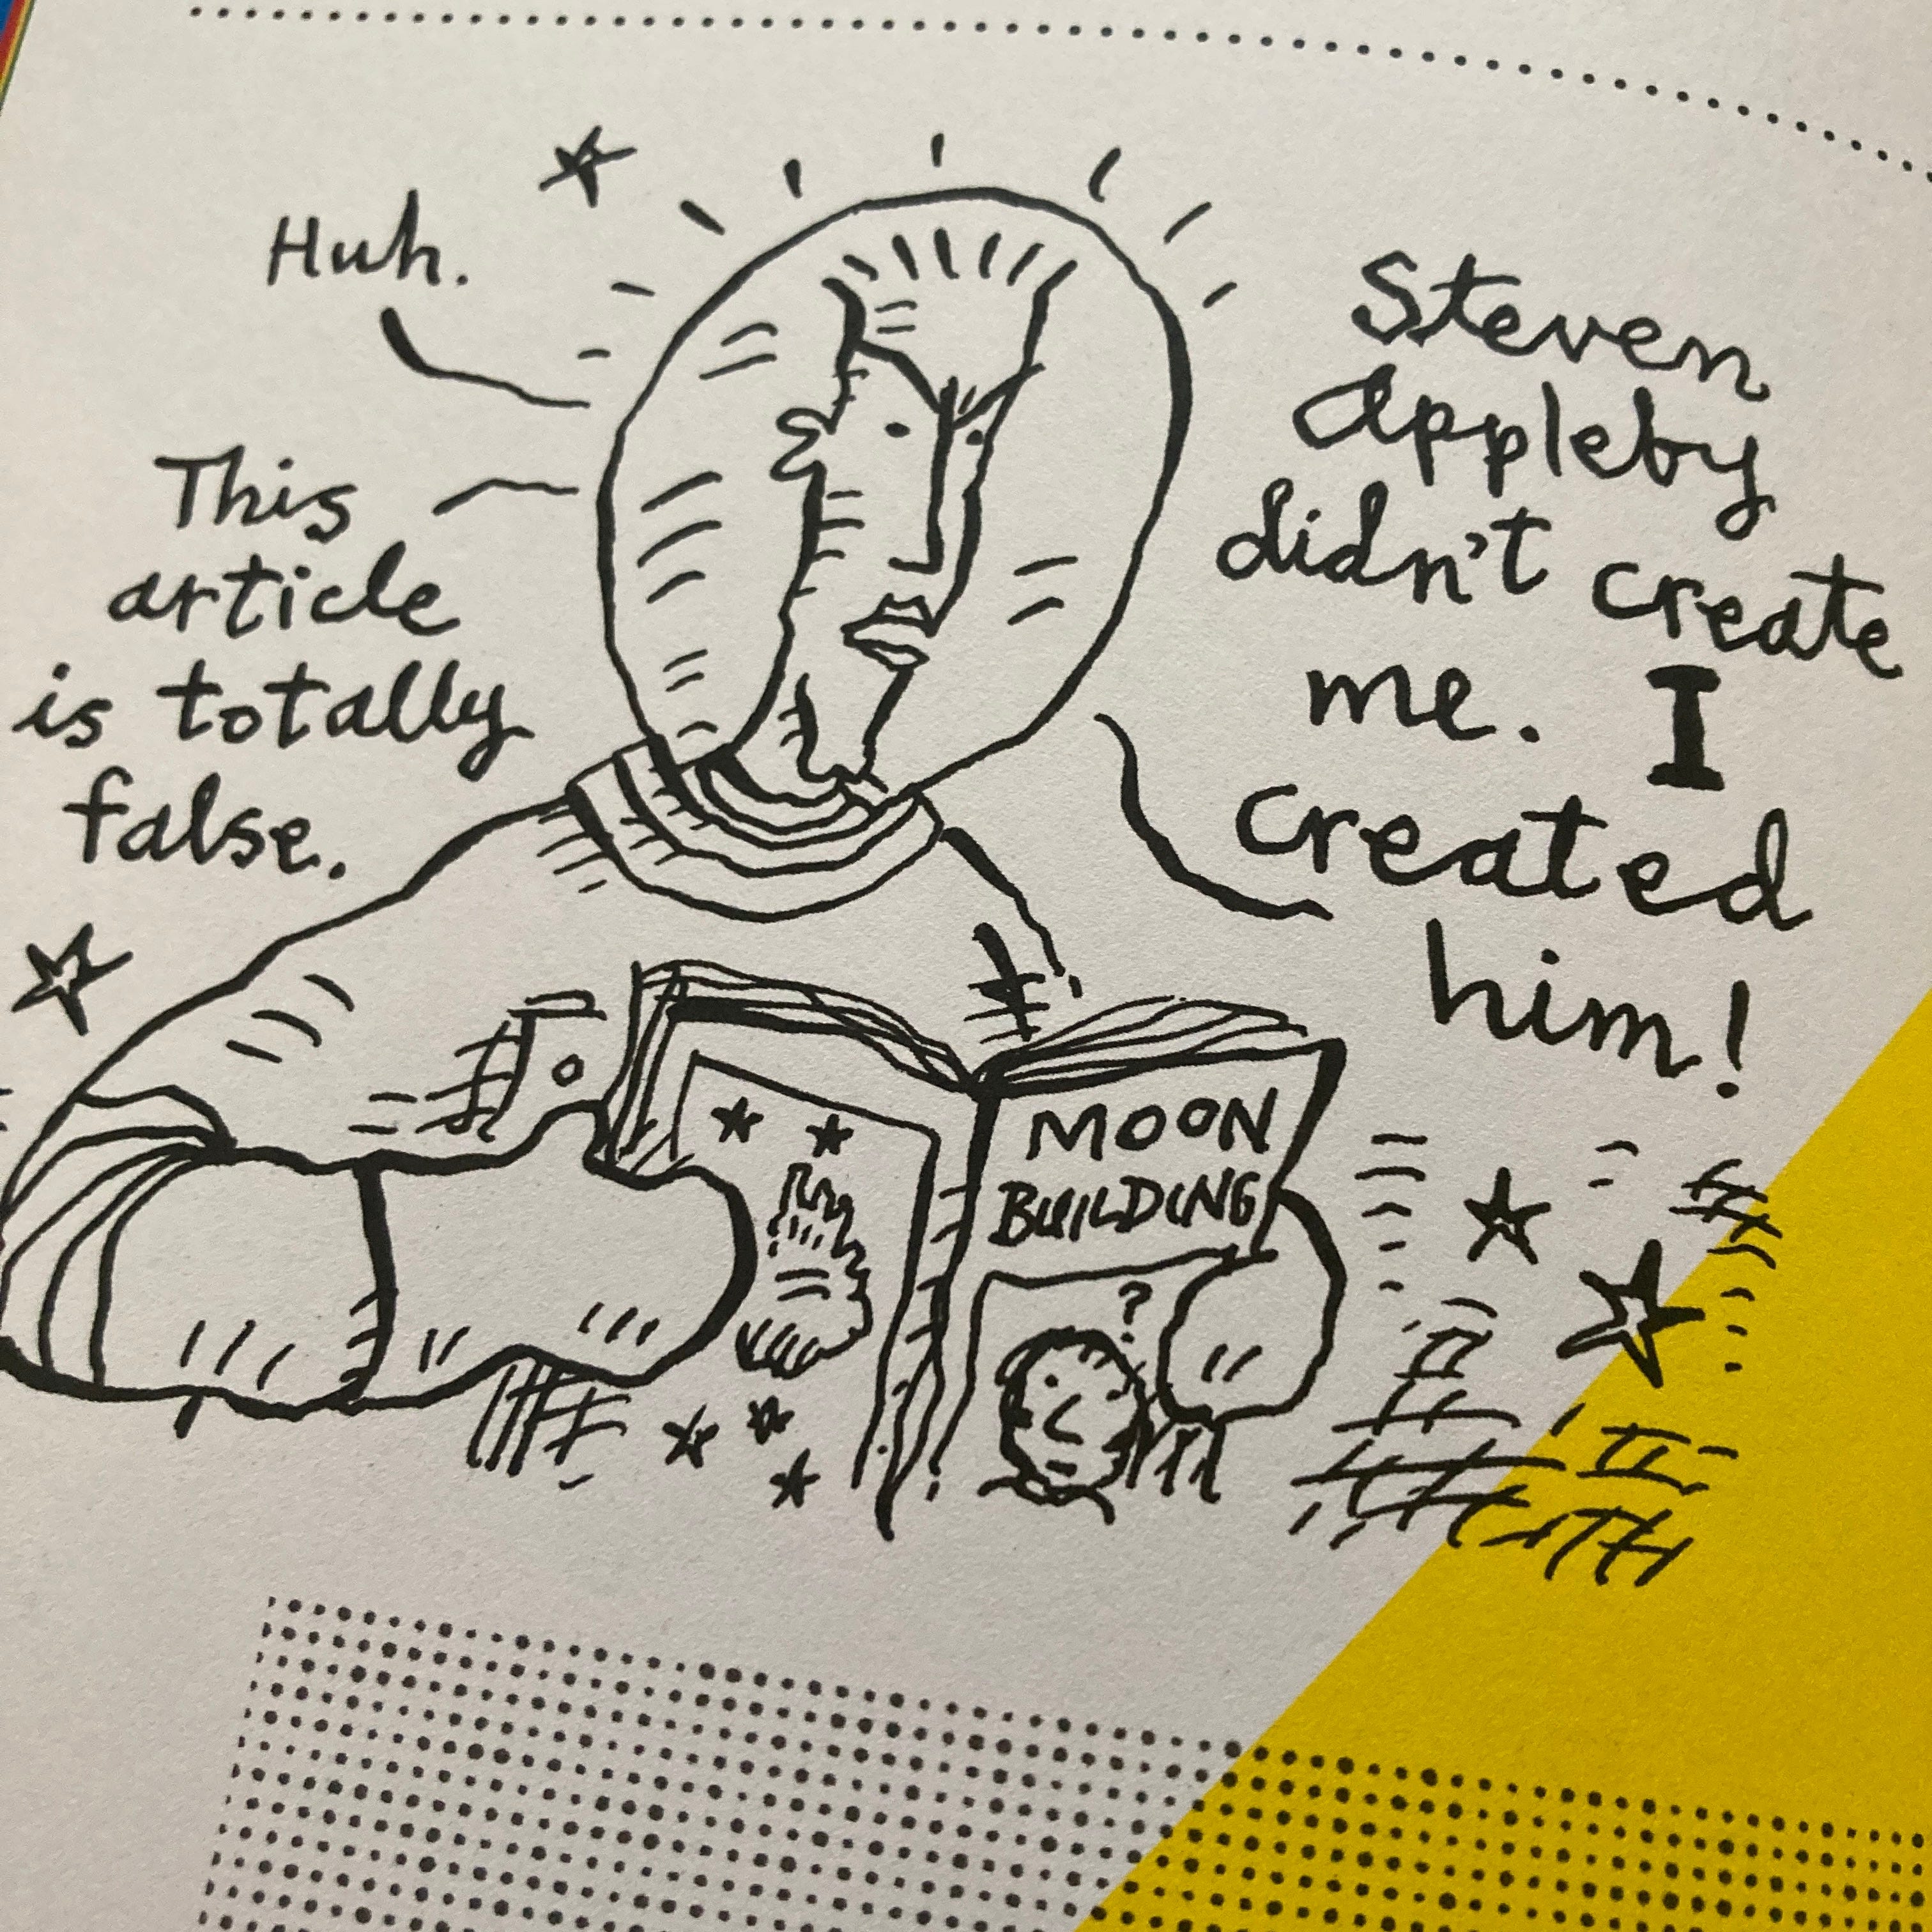 Huh.
This
article
is totally
false.
Steven
Appleby
didn't create
me. I
created
him!
MOON
BUILDING
?